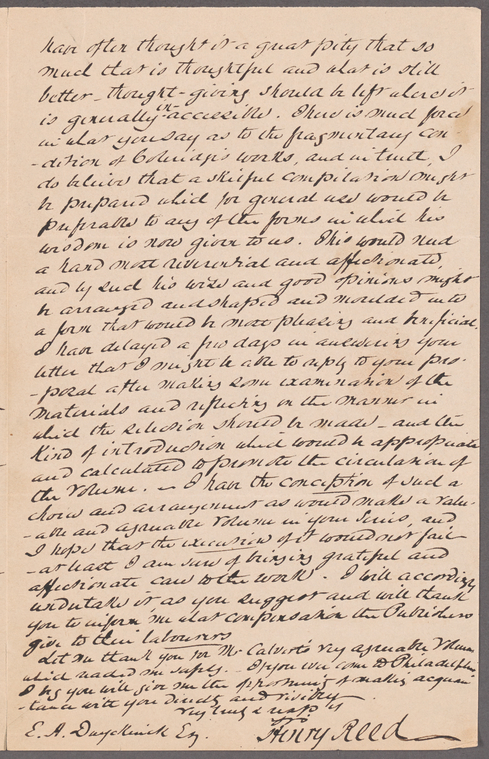 have often thought it a great pity that so
much that is thoughtful and what is still
better – thought-giving should be left where it
is generally in-accessible. There is much force
in what you say as to the fragmentary con-
-dition of Coleridge's works, and in truth, I
do believe that a skilful compilation might
be prepared which for general use would be
preferable to any of the forms in which his
wisdom is now given to us. This would need
a hand most reverential and affectionate,
and by such his wise and good opinions might
be arranged and shaped and moulded into
a form that would be most pleasing and beneficial.
I have delayed a few days in answering your
letter that I might be able to reply to your pro-
-posal after making some examination of the
materials and reflecting on the manner in
which the selection should be made – and the
kind of introduction which would be appropriate
and calculated to promote the circulation of
the volume. – I have the conception of such a
choice and arrangement as would make a valu-
-able and agreeable volume in your series, and
I hope that the execution of it would not fail
– at least I am sure of bringing grateful and
affectionate care to the work. I will accordingly
undertake it as you suggest and will thank
you to inform me what compensation the Publishers
give to their labourers
Let me thank you for Mr Calvert's very agreeable volume
which reached me safely. – If you ever come to Philadelphia
I beg you will give me the opportunity of making acquain
-tance with you directly and visibly
Very truly & resp yrs
E. A. Duyckinck Esq. Henry Reed